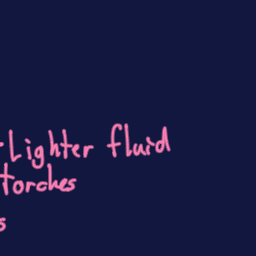 Lighter fluid
torches
s